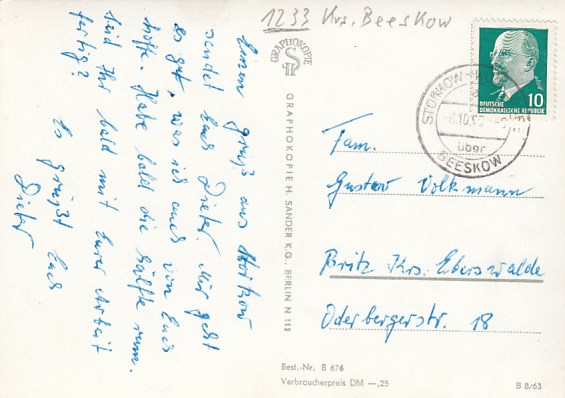 1233 Krs. Beeskow
Einen Gruß aus Storkow
sendet Euch Dieter. Mir geht
es gut, was ich auch von Euch
hoffe. Habe bald die Hälfte rum.
Seid Ihr bald mit Eurer Arbeit
fertig?
Es grüßt Euch
Dieter
GRAPHOKOPIE
GRAPHOKOPIE H. SANDER K.G., BERLIN N 113
DEUTSCHE
DEMOKRATISCHE REPUBLIK
10
STORKOW
über
BEESKOW
Fam.
Gustav Volkmann
Britz Krs. Eberswalde
Oderbergerstr. 18
Best.-Nr. B 676
Verbraucherpreis DM —,25
B 8/63